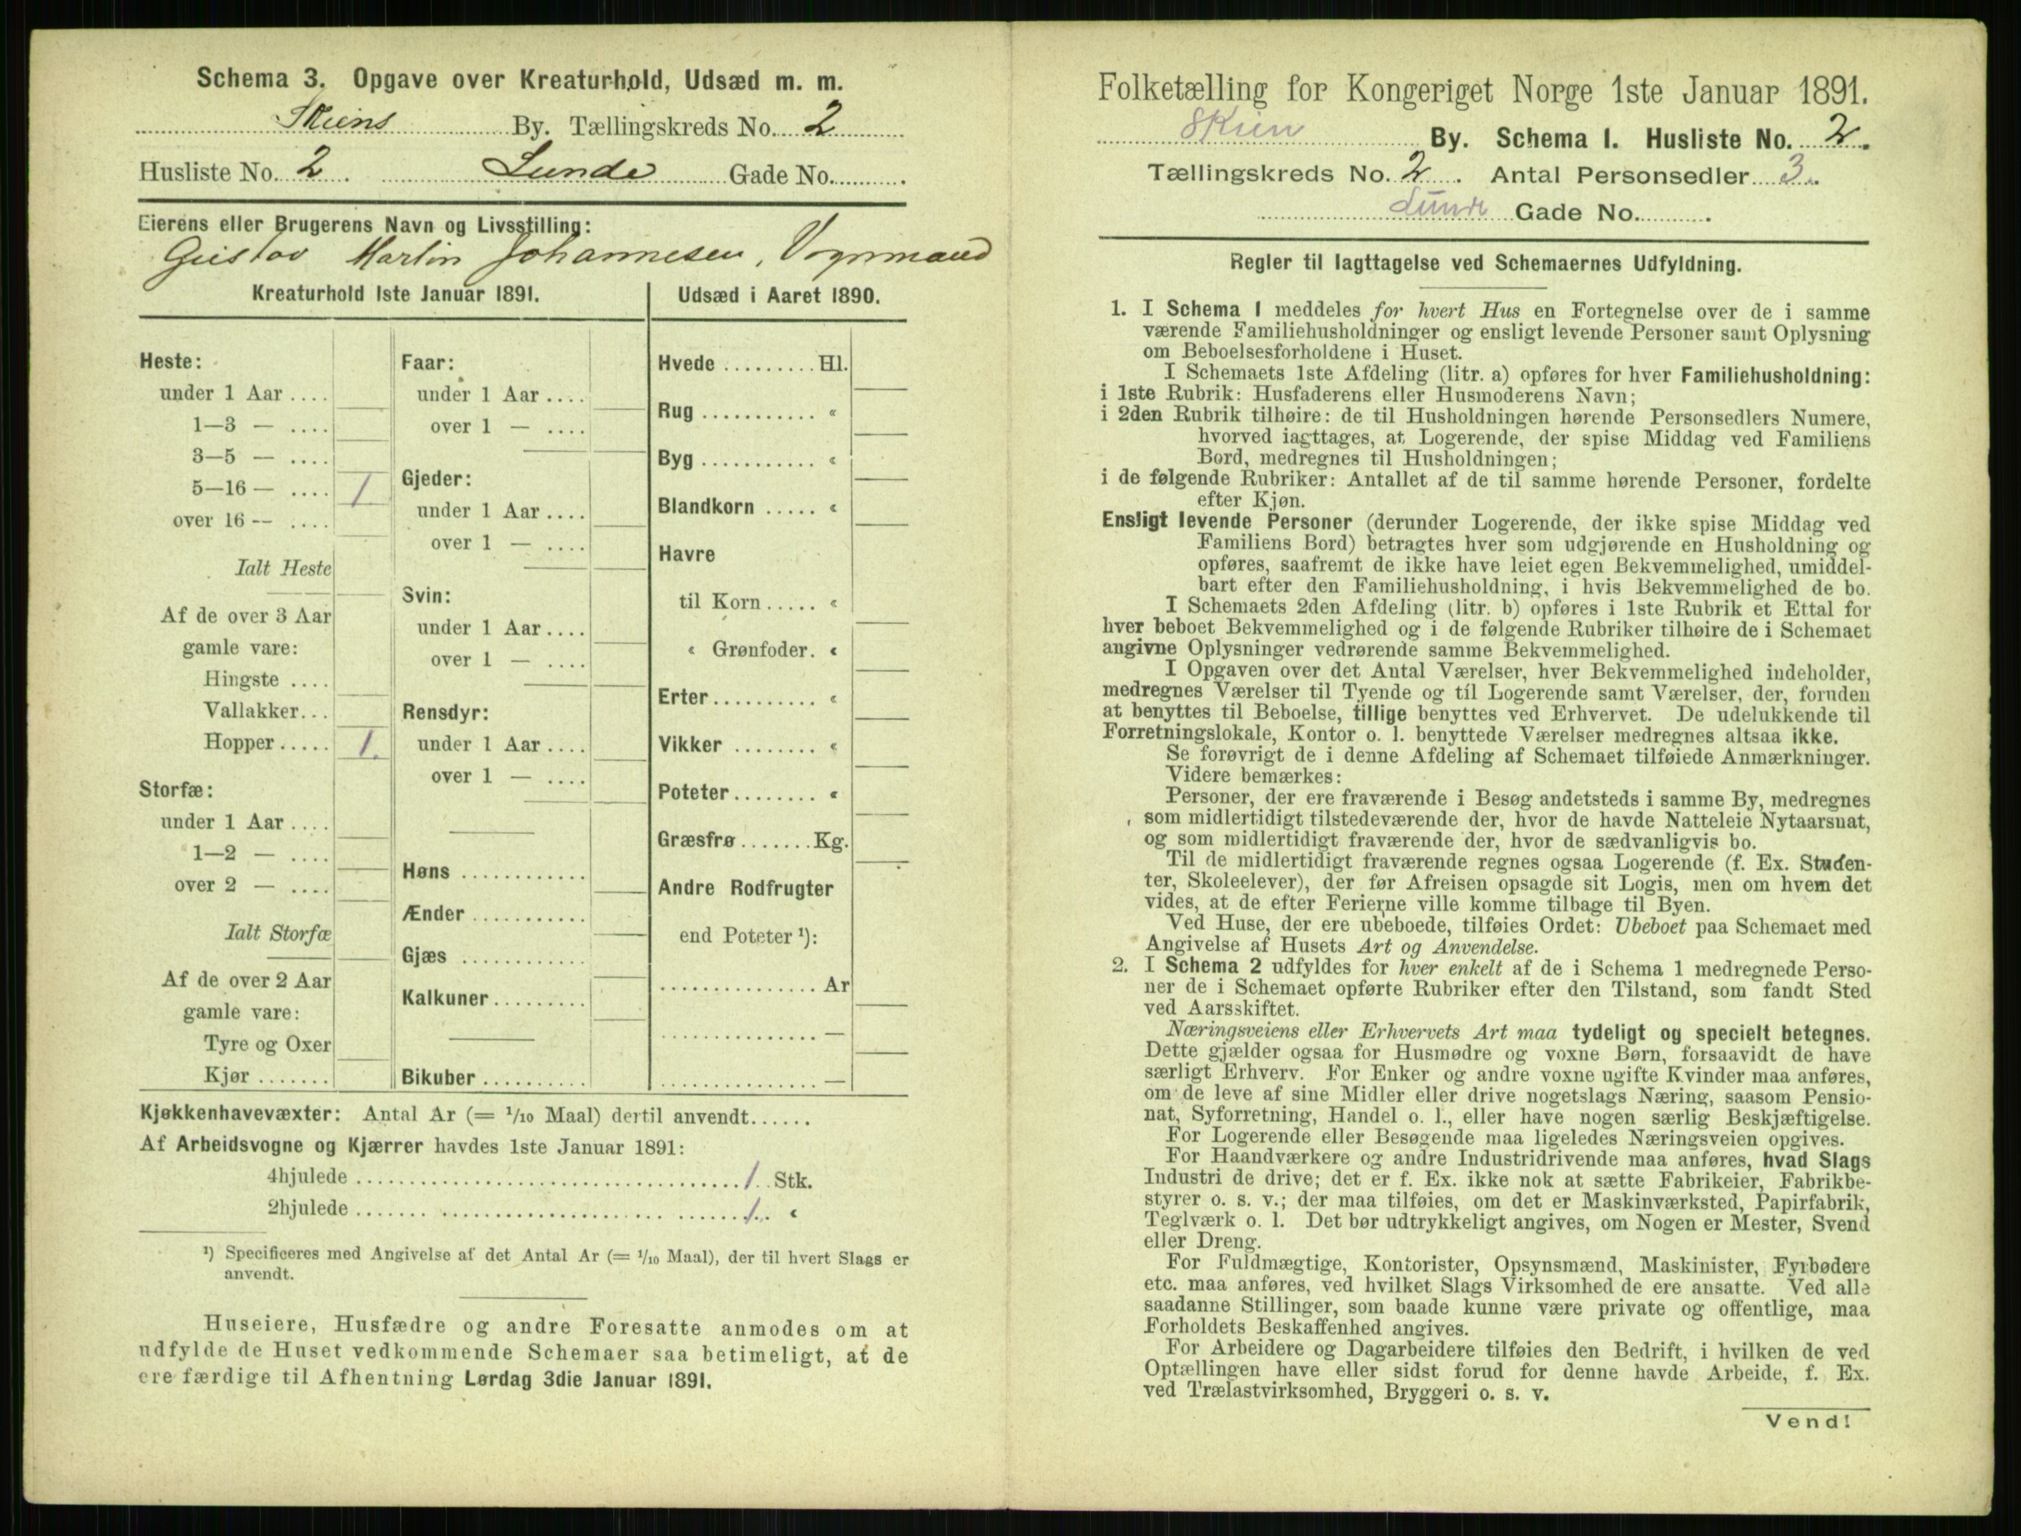 Schema 3. Opgave over Kreaturhold, Udsæd m. m.
Skiens By. Tællingskreds No. 2
Husliste No. 2 Lunde Gade No.
Eierens eller Brugerens Navn og Livsstilling:
Gustav Martin Johannesen, Vognmand
Kreaturhold 1ste Januar 1891.
Heste:
under 1 Aar ....
1—3 — ....
3—5 — ....
5—16 — .... 1
over 16 -- ....
Ialt Heste
Af de over 3 Aar
gamle vare:
Hingste ....
Vallakker...
Hopper..... 1.
Storfæ:
under 1 Aar ....
1—2 — ....
over 2 — ....
Ialt Storfæ
Af de over 2 Aar
gamle vare:
Tyre og Oxer
Kjør .......
Faar:
under 1 Aar ....
over 1 — ....
Gjeder:
under 1 Aar ....
over 1 — ....
Svin:
under 1 Aar ....
over 1 — ....
Rensdyr:
under 1 Aar ....
over 1 — ....
Høns ............
Ænder ...........
Gjæs ............
Kalkuner.........
Bikuber ..........
Udsæd i Aaret 1890.
Hvede ......... Hl.
Rug ........... «
Byg ........... «
Blandkorn ..... «
Havre
til Korn..... «
« Grønfoder. «
Erter.......... «
Vikker ........ «
Poteter........ «
Græsfrø ....... Kg.
Andre Rodfrugter
end Poteter ¹):
............... Ar
............... —
............... —
Kjøkkenhavevæxter: Antal Ar (= 1/10 Maal) dertil anvendt......
Af Arbeidsvogne og Kjærrer havdes 1ste Januar 1891:
4hjulede ........ 1 Stk.
2hjulede ........ 1. «
¹) Specificeres med Angivelse af det Antal Ar (= 1/10 Maal), der til hvert Slags er
anvendt.
Huseiere, Husfædre og andre Foresatte anmodes om at
udfylde de Huset vedkommende Schemaer saa betimeligt, at de
ere færdige til Afhentning Lørdag 3die Januar 1891.
Folketælling for Kongeriget Norge 1ste Januar 1891.
Skien By. Schema I. Husliste No. 2.
Tællingskreds No. 2. Antal Personsedler 3.
Lunde Gade No. .
Regler til Iagttagelse ved Schemaernes Udfyldning.
1. I Schema 1 meddeles for hvert Hus en Fortegnelse over de i samme
værende Familiehusholdninger og ensligt levende Personer samt Oplysning
om Beboelsesforholdene i Huset.
I Schemaets 1ste Afdeling (litr. a) opføres for hver Familiehusholdning:
i 1ste Rubrik: Husfaderens eller Husmoderens Navn;
i 2den Rubrik tilhøire: de til Husholdningen hørende Personsedlers Numere,
hvorved iagttages, at Logerende, der spise Middag ved Familiens
Bord, medregnes til Husholdningen;
i de følgende Rubriker: Antallet af de til samme hørende Personer, fordelte
efter Kjøn.
Ensligt levende Personer (derunder Logerende, der ikke spise Middag ved
Familiens Bord) betragtes hver som udgjørende en Husholdning og
opføres, saafremt de ikke have leiet egen Bekvemmelighed, umiddel-
bart efter den Familiehusholdning, i hvis Bekvemmelighed de bo.
I Schemaets 2den Afdeling (litr. b) opføres i 1ste Rubrik et Ettal for
hver beboet Bekvemmelighed og i de følgende Rubriker tilhøire de i Schemaet
angivne Oplysninger vedrørende samme Bekvemmelighed.
I Opgaven over det Antal Værelser, hver Bekvemmelighed indeholder,
medregnes Værelser til Tyende og til Logerende samt Værelser, der, foruden
at benyttes til Beboelse, tillige benyttes ved Erhvervet. De udelukkende til
Forretningslokale, Kontor o. l. benyttede Værelser medregnes altsaa ikke.
Se forøvrigt de i denne Afdeling af Schemaet tilføiede Anmærkninger.
Videre bemærkes:
Personer, der ere fraværende i Besøg andetsteds i samme By, medregnes
som midlertidigt tilstedeværende der, hvor de havde Natteleie Nytaarsnat,
og som midlertidigt fraværende der, hvor de sædvanligvis bo.
Til de midlertidigt fraværende regnes ogsaa Logerende (f. Ex. Studen-
ter, Skoleelever), der før Afreisen opsagde sit Logis, men om hvem det
vides, at de efter Ferierne ville komme tilbage til Byen.
Ved Huse, der ere ubeboede, tilføies Ordet: Ubeboet paa Schemaet med
Angivelse af Husets Art og Anvendelse.
2. I Schema 2 udfyldes for hver enkelt af de i Schema 1 medregnede Perso-
ner de i Schemaet opførte Rubriker efter den Tilstand, som fandt Sted
ved Aarsskiftet.
Næringsveiens eller Erhvervets Art maa tydeligt og specielt betegnes.
Dette gjælder ogsaa for Husmødre og voxne Børn, forsaavidt de have
særligt Erhverv. For Enker og andre voxne ugifte Kvinder maa anføres,
om de leve af sine Midler eller drive nogetslags Næring, saasom Pensio-
nat, Syforretning, Handel o. l., eller have nogen særlig Beskjæftigelse.
For Logerende eller Besøgende maa ligeledes Næringsveien opgives.
For Haandværkere og andre Industridrivende maa anføres, hvad Slags
Industri de drive; det er f. Ex. ikke nok at sætte Fabrikeier, Fabrikbe-
styrer o. s. v.; der maa tilføies, om det er Maskinværksted, Papirfabrik,
Teglværk o. l. Det bør udtrykkeligt angives, om Nogen er Mester, Svend
eller Dreng.
For Fuldmægtige, Kontorister, Opsynsmænd, Maskinister, Fyrbødere
etc. maa anføres, ved hvilket Slags Virksomhed de ere ansatte. Ved alle
saadanne Stillinger, som baade kunne være private og offentlige, maa
Forholdets Beskaffenhed angives.
For Arbeidere og Dagarbeidere tilføies den Bedrift, i hvilken de ved
Optællingen have eller sidst forud for denne havde Arbeide, f. Ex.
ved Trælastvirksomhed, Bryggeri o. s. v.
Vend!